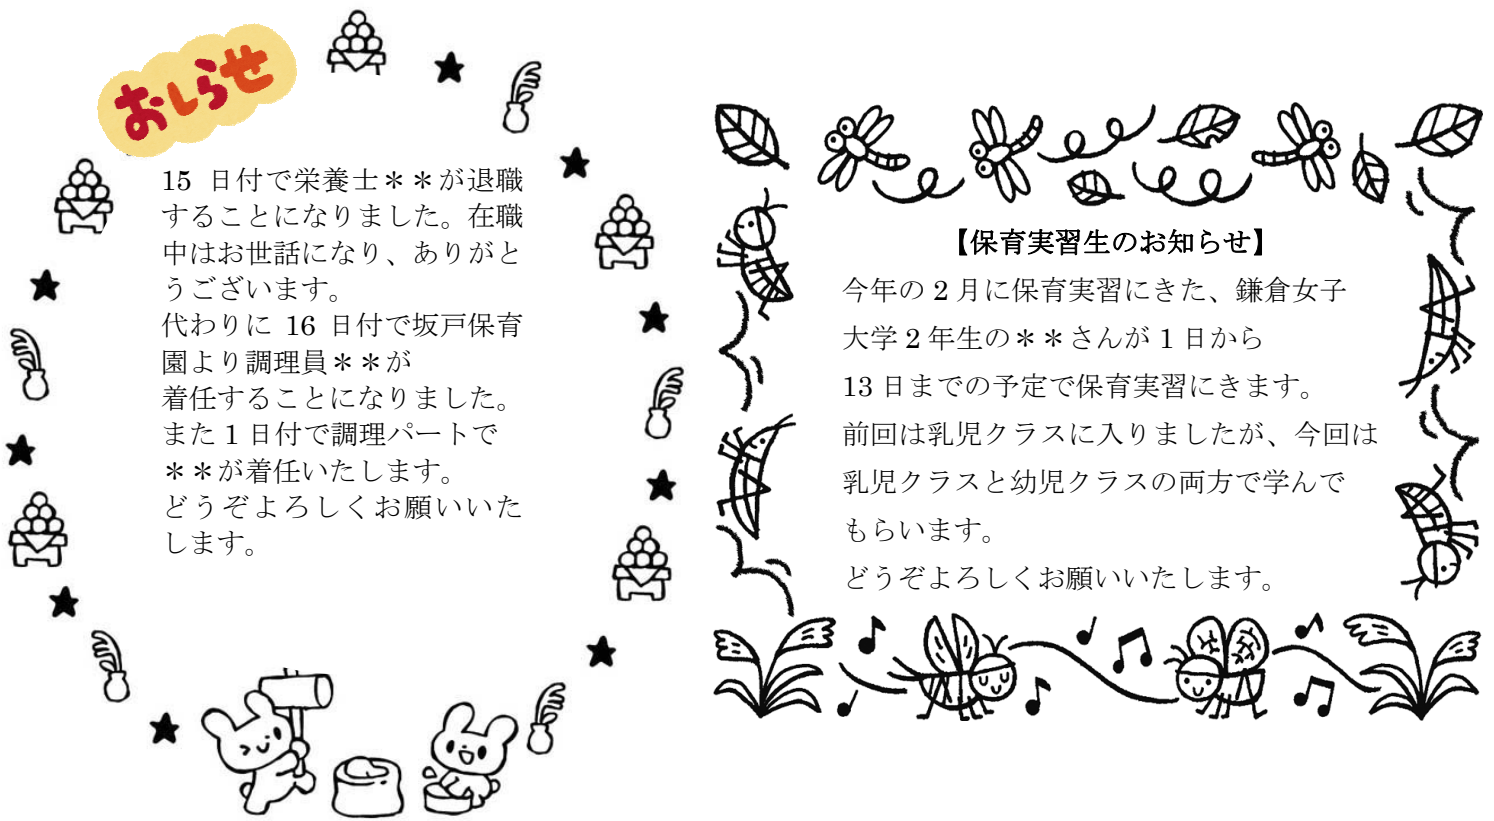 おしらせ
15 日付で栄養士＊＊が退職
することになりました。在職
中はお世話になり、ありがと
うございます。
代わりに 16 日付で坂戸保育
園より調理員＊＊が
着任することになりました。
また 1 日付で調理パートで
＊＊が着任いたします。
どうぞよろしくお願いいた
します。
【保育実習生のお知らせ】
今年の 2 月に保育実習にきた、鎌倉女子
大学 2 年生の＊＊さんが 1 日から
13 日までの予定で保育実習にきます。
前回は乳児クラスに入りましたが、今回は
乳児クラスと幼児クラスの両方で学んで
もらいます。
どうぞよろしくお願いいたします。